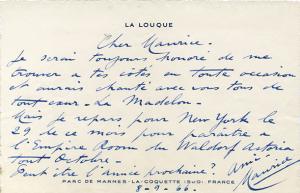 LA LOUQUE
Cher Maurice.
Je serai toujours honoré de me
trouver à tes côtés en toute occasion
et aurais chanté avec vous de
tout cœur - La Madelon -
Mais je repars pour New York le
29 de ce mois pour paraître à
l'Empire Room du Waldorf Astoria
tout Octobre -
Peut être l'année prochaine? Ami
Maurice
PARC DE MARNES-LA-COQUETTE (S&O) FRANCE
8-9-66-